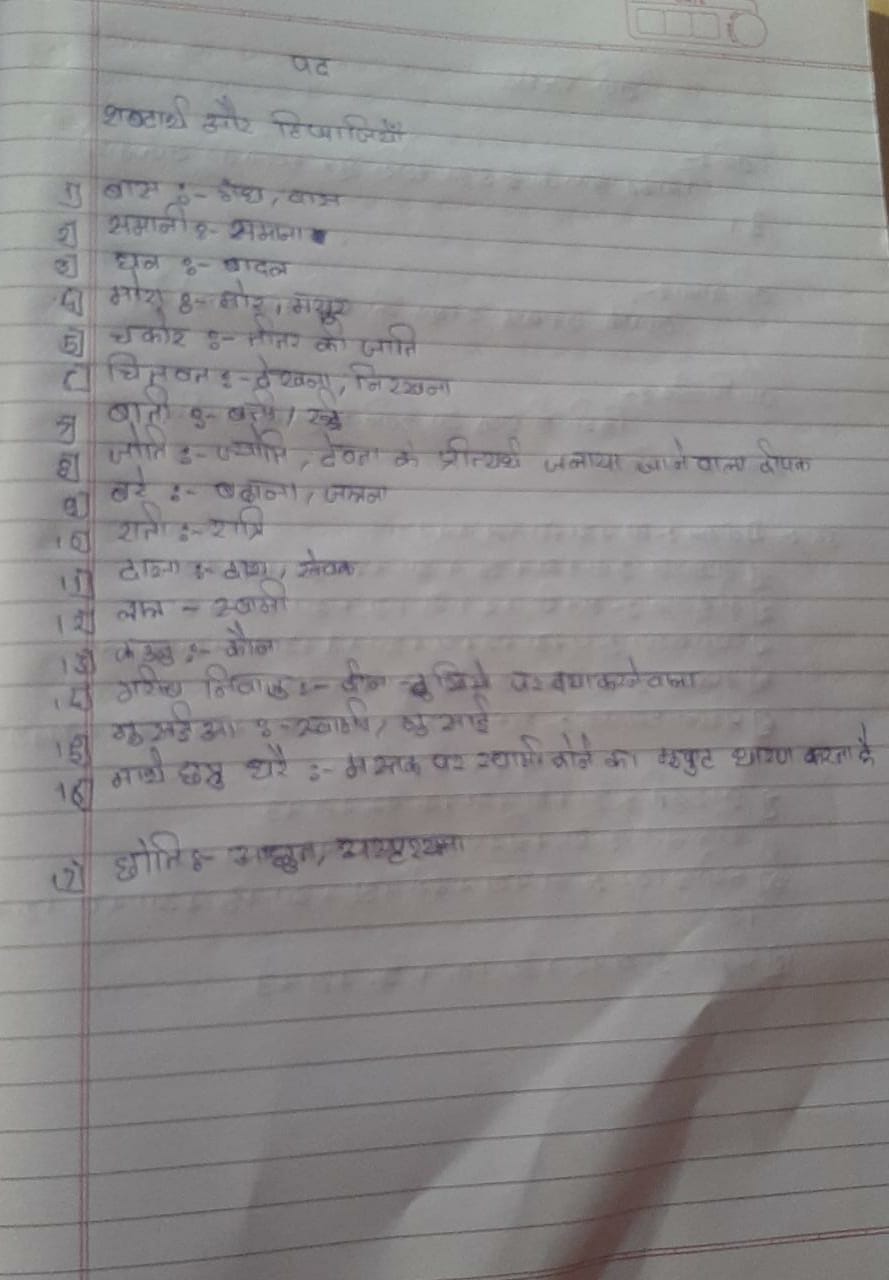 पद
शब्दार्थ और टिप्पणियाँ
1) बास :- गंध, वास
2) समानी :- समाना
3) घन :- बादल
4) मोरा :- मोर, मयूर
5) चकोर :- तीतर की जाति
6) चितवत :- देखना, निरखना
7) बाती :- बत्ती, रुई
8) जोति :- ज्योति, देवता के प्रीत्यर्थ जलाया जाने वाला दीपक
9) बरै :- बढ़ाना, जलना
10) राती :- रात्रि
11) दासा :- दास, सेवक
12) लाल - स्वामी
13) :- कौन
14) गरीब निवाजु :- दीन-दुखियों पर दया करने वाला
15) गुसईआ :- स्वामी, गुसाई
16) माथे छत्रु धरै :- मस्तक पर स्वामी होने का मुकुट धारण करता है
17) छोति :-